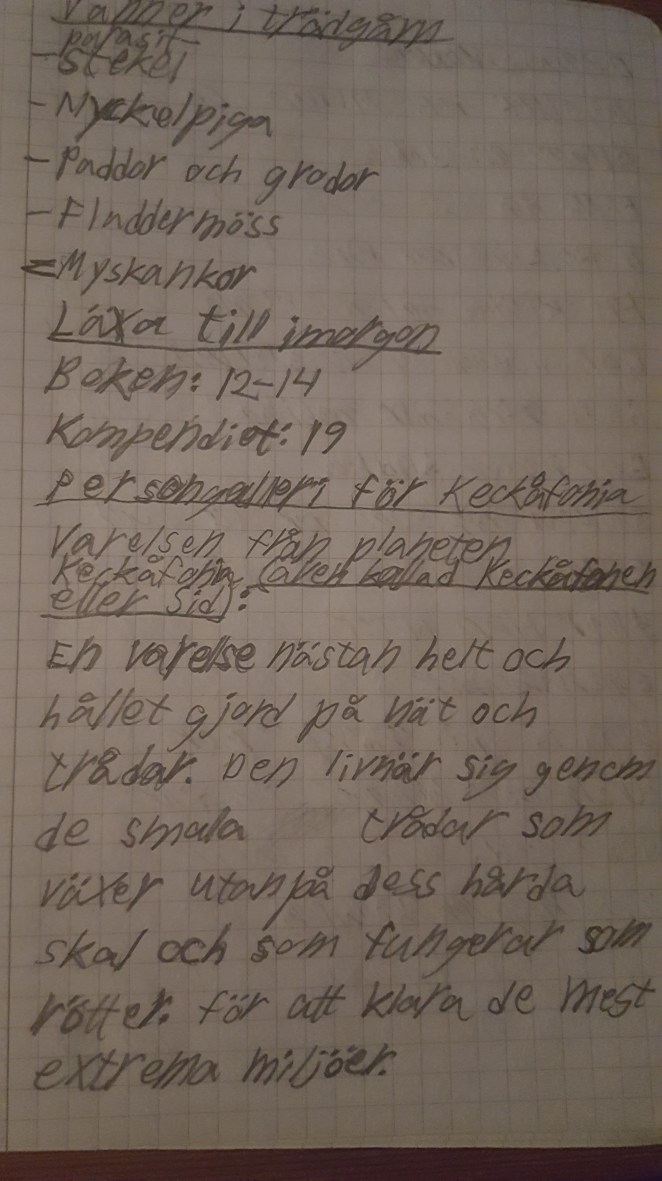 Vänner i trädgårn
parasit-
- stekel
- Nyckelpiga
- Paddor och grodor
- Fladdermöss
- Myskankor
Läxa till imorgon
Boken: 12-14
Kompendiet: 19
Persongalleri för Keckåfonia
Varelsen från planeten
Keckåfonia (även kallad Keckåfonen
eller Sid):
En varelse nästan helt och
hållet gjord på nät och
trådar. Den livnär sig genom
de smala trådar som
växer utanpå dess hårda
skal och som fungerar som
rötter. för att klara de mest
extrema miljöer.